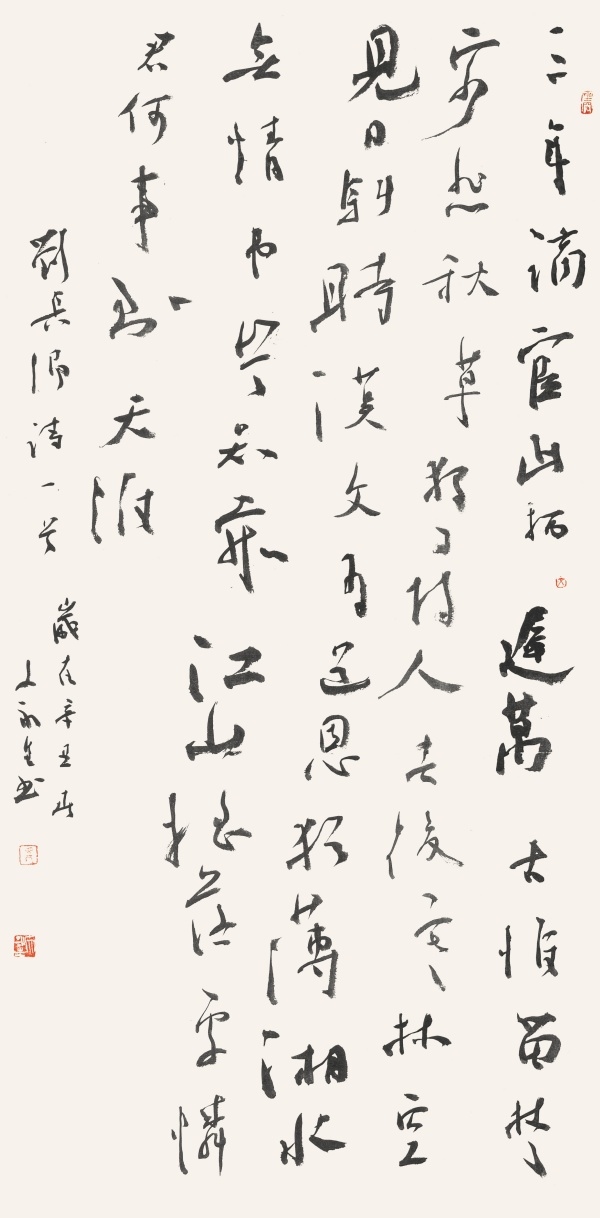 三年謫宦此栖遲萬古惟留楚
客悲秋草獨尋人去後寒林空
見日斜時漢文有道恩猶薄湘水
無情弔豈知寂江山搖落處憐
君何事到天涯
劉長卿詩一首
歲在辛丑
書